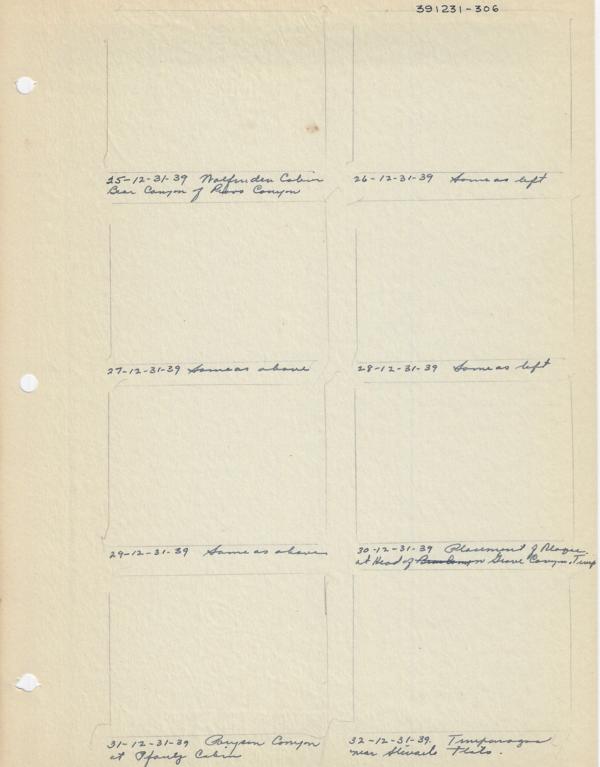 391231-306
25-12-31-39 Cabin
Bear Canyon of Provo Canyon
26-12-31-39 Same as left
27-12-31-39 Same as above
28-12-31-39 Same as left
29-12-31-39 Same as above
30-12-31-39 Placement of Plaque
at Head of Grove Canyon, Timp
31-12-31-39 Payson Canyon
at Pfautz Cabin
32-12-31-39 Timpanogos
near Flats.